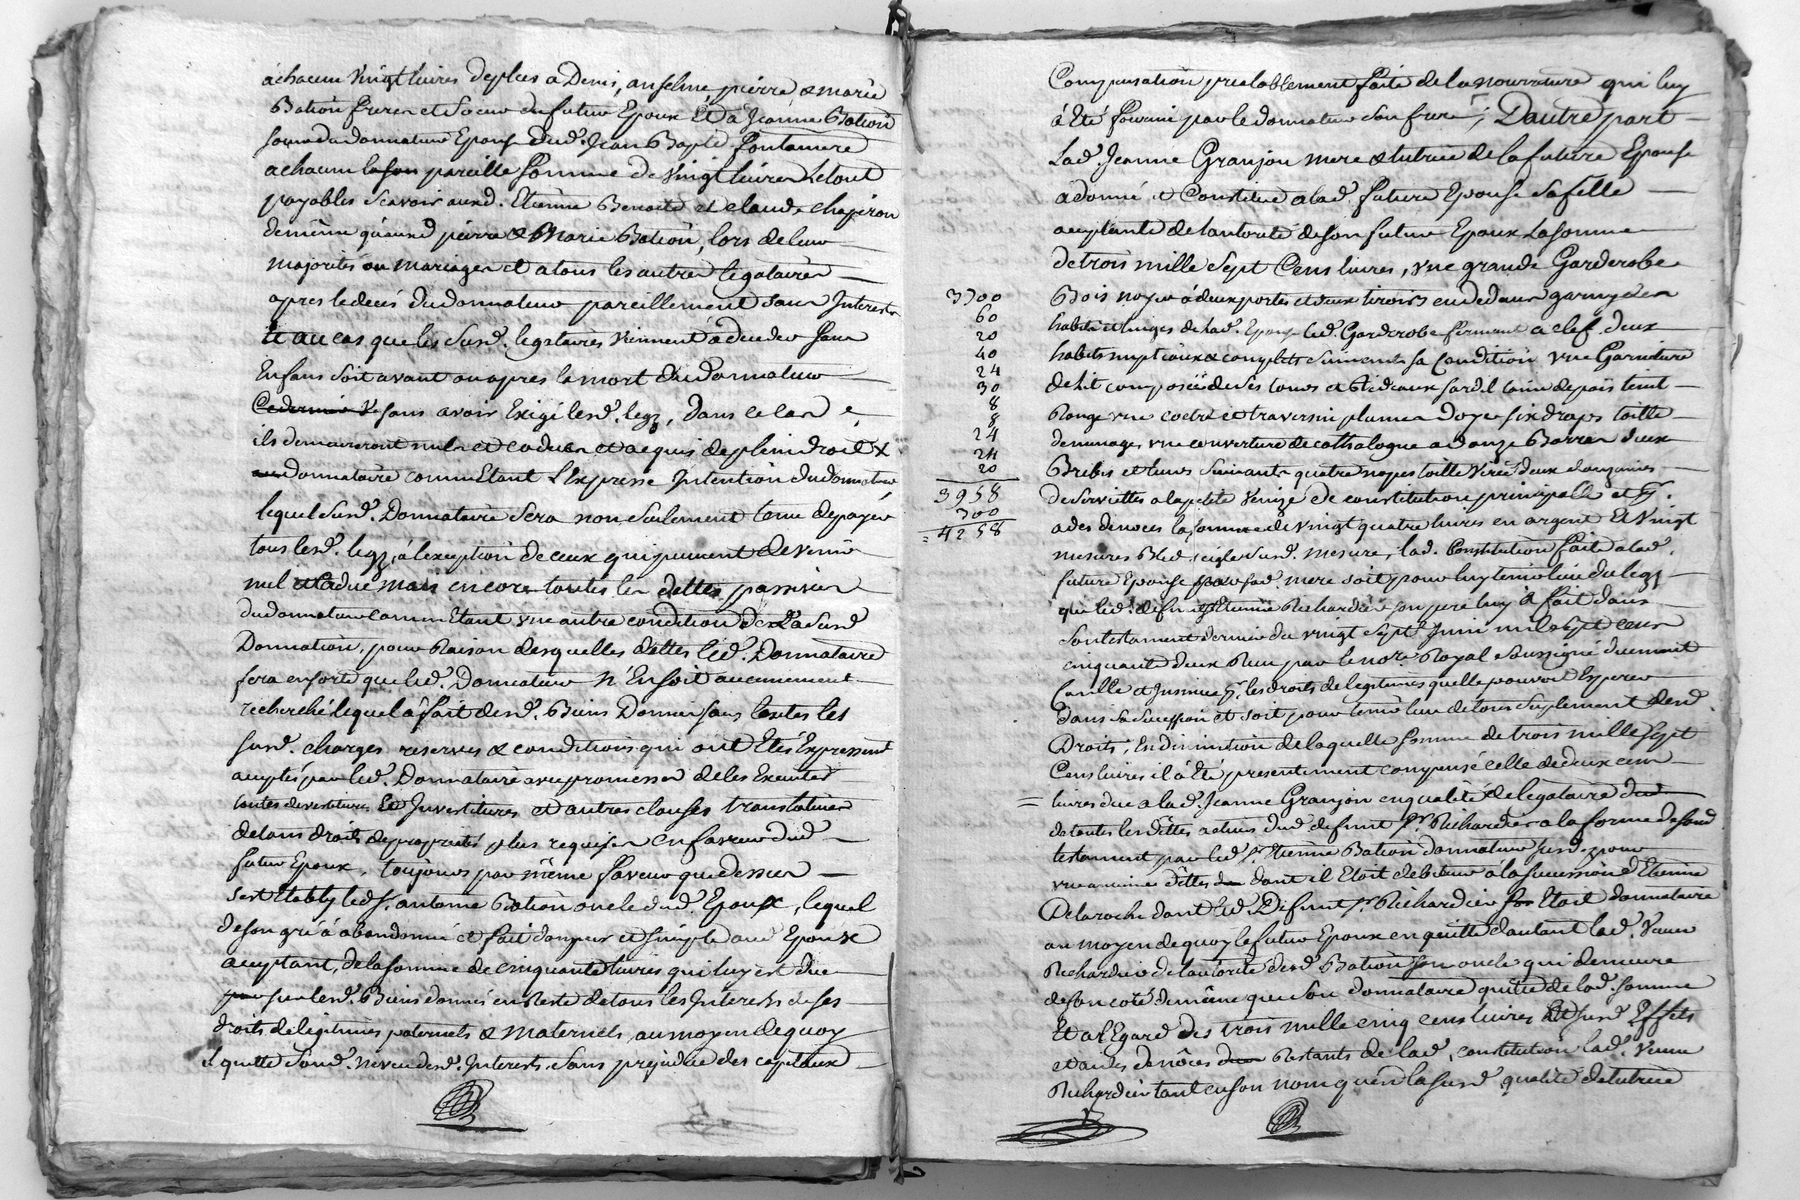 à chacun vingt livres de plus a Denis, anselme, pierre & marie
Bation freres et Soeur du futur Epoux Et à Jeanne Bation
soeur du donnateur Epouse dud. Jean Bapte. fontanere
a chacun pareille Somme de vingt livres Le tout
payables Scavoir auxd. Etienne Benoite et claude chapiron
de même qu'auxd pierre & Marie Bation, lors de leur
majorités ou mariages et a tous les autres legataires
apres le decès du donnateur pareillement sans Interests
et au cas que les susd. legataires viennent à deceder sans
Enfans soit avant ou apres la mort dud. donnateur
sans avoir Exigé lesd. legs, dans ce cas
ils demeureront nuls et caducs et acquis de plein droit
donnataire comme Etant l'Expresse Intention du donnateur,
lequel susd. Donnataire sera non seulement tenu de payer
tous lesd. legs, à l'exception de ceux qui peuvent devenir
nul et caduc mais encore toutes les dettes passives
du donnateur comme Etant une autre condition de la susd
Donnation, pour Raison desquelles dettes led. Donnataire
fera en sorte que led. Donnateur N'En soit aucunement
recherché lequel a fait desd. Biens Donnés sous toutes les
susd. charges reserves & conditions qui ont Etés Expressement
acceptés par led. Donnataire avec promesse de les Executer
toutes devestitures Et Investitures et autres clauses translatives
de tous droits de propriété plus requises en faveur dud
futur Epoux, toujours par même faveur que dessus
s'est Etably led. sr. antoine Bation oncle dud. Epoux, lequel
de son gré à abandonné et fait don pur et simple aud Epoux
acceptant, de la somme de cinquante livres qui luy est due
sur lesd. Biens donnés en Reste de tous les Interests de ses
droits de legitimes paternels & maternels, au moyen de quoy
il quitte sond. neveu desd. Interests, sans prejudice des capitaux
Compensation prealablement faite de la nourriture qui luy
à Eté fournie par le donnateur son frere, D'autre part
Lad. Jeanne Granjon mere & tutrice de la future Epouse
a donné et Constitué a lad. future Epouse sa fille
acceptante de l'autorité de son futur Epoux La somme
de trois mille Sept Cens livres, une grande Garderobe
Bois noyer à deux portes et deux tiroirs en dedans garnye des
habits et linges de lad. Epouse lad. Garderobe fermant a clef. deux
habits nuptiaux & complets suivant sa Condition une Garniture
de lit composée de six tours et Rideaux sardil toile de païs teint
Rouge une coetre et traversin plumes d'oye six draps toille
de menage, une couverture de cathalogne a donze Barres deux
Brebis et leurs suivants quatre napes toille deux douzaines
de serviettes a la petite Venize de constitution principalle et
a des de noces la somme de vingt quatre livres en argent Et Vingt
mesures Bled seigle susd. mesure, lad. Constitution faite a lad.
future Epouse par sad. mere soit pour luy tenir lieu du legs
que led. defunt Etienne Richardier son pere luy a fait dans
son testament dernier du vingt Sept Juin mil sept cens
cinquante deux Reçu par le nore. Royal soussigné duement
Conllé et Insinué, les droits de legitimes quelle pouvoit Esperer
dans sa succession et soit pour tenir lieu de tous suplement desd.
Droits, En diminution de laquelle somme de trois mille Sept
Cens livres il à Eté presentement compensé celle de deux cens
livres due a lad. Jeanne Granjon en qualité de legataire
de toutes les dettes actives dud defunt sr. Richardier a la forme de sond
testament par led. sr. Etienne Bation donnateur susd. pour
dettes dont il Etoit debiteur à la succession d'Etienne
Delaroche dont led. Defunt sr. Richardier Etoit donnataire
au moyen de quoy le futur Epoux en quitte d'autant lad. Veuve
Richardier de l'autorité desd. Bation son oncle qui demeure
de son coté de même que son donnataire quitte de lad. somme
Et a l'Egard des trois mille cinq cens livres Et susd Effets
et ades de nôces Restants de lad. constitution lad. Veuve
Richardier tant en son nom qu'en la susd. qualité de tutrice
3700
60
20
40
24
30
8
8
24
24
20
3958
300
= 4258